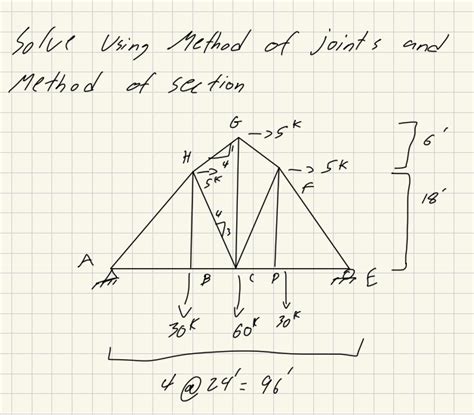 Solve Using Method of joints and
Method of section
G
→5K
6'
H
1
4
5K
→5K
F
18'
4
3
A
B
C
D
E
30K
60K
30K
4 @ 24' = 96'